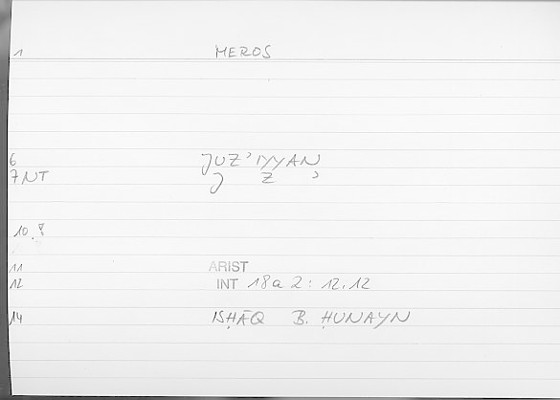 1 MEROS
6 JUZʾIYYAN
7NT J Z ʾ
10.8
11 ARIST
12 INT 18a 2: 12.12
14 ISḤĀQ B. ḤUNAYN